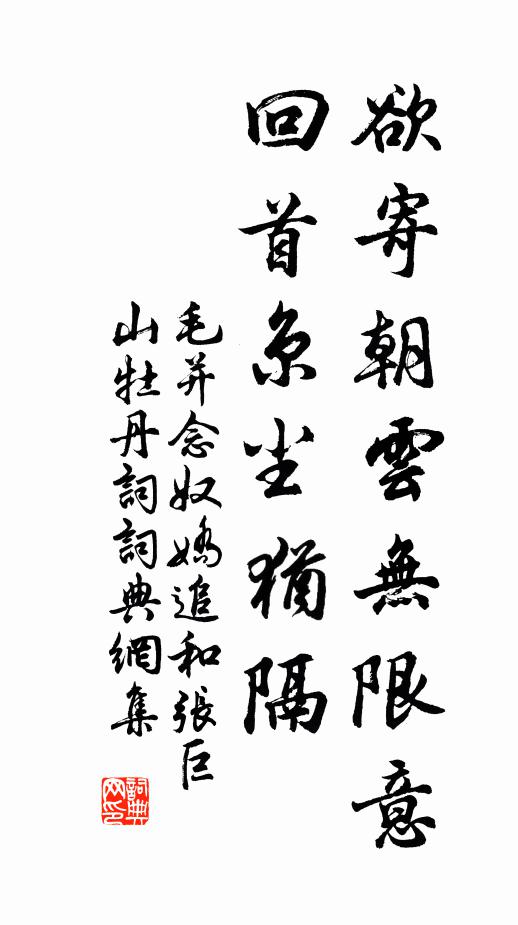 欲寄朝雲無限意
回首京尘猶隔
毛并念奴嬌追和張巨
山牡丹詞詞典網集
詞典网印